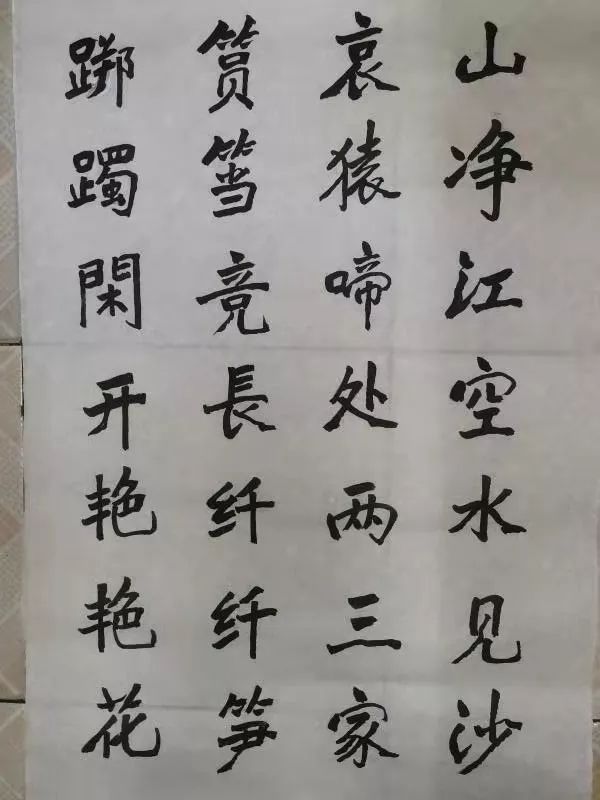 山净江空水见沙
哀猿啼处两三家
筼筜竞長纤纤笋
踯躅閑开艳艳花